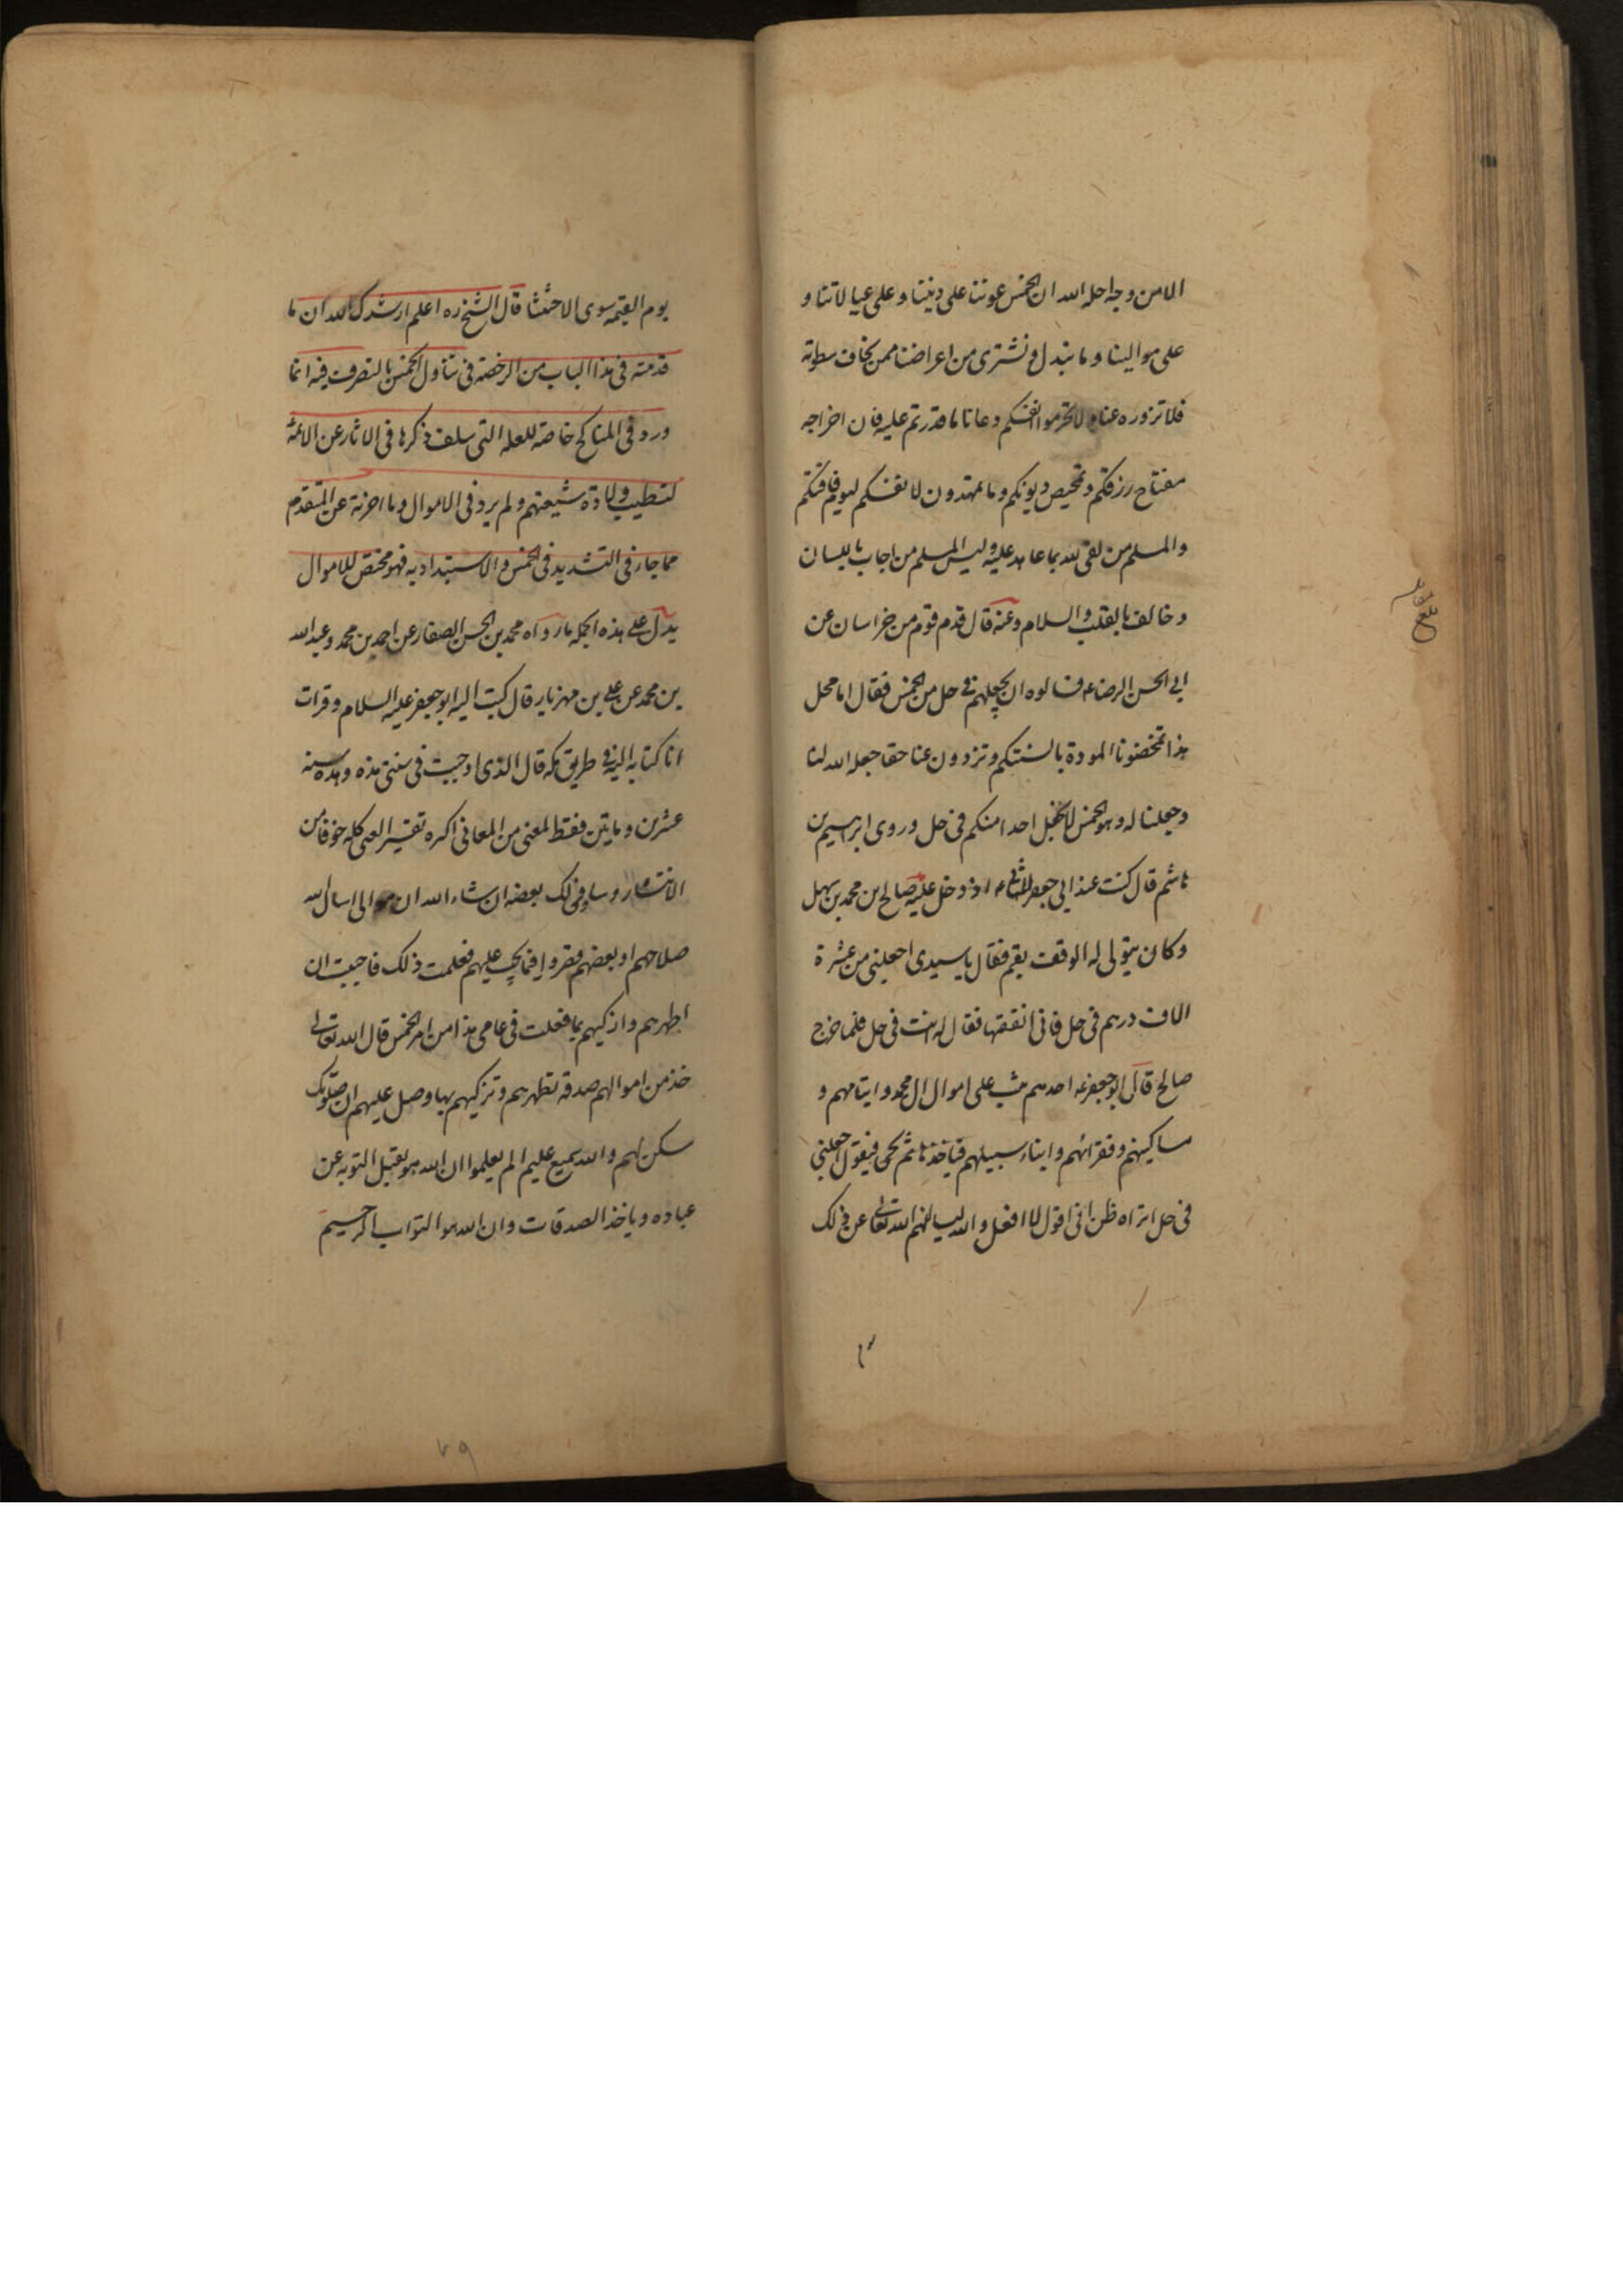 الا من وجه احله الله ان الخمس عوننا على ديننا و على عيالاتنا و
على موالينا و ما نبذل و نشترى من اعراضنا ممن يخاف سطوته
فلا تزوره عنا و لا تحرموا انفسكم دعانا ما قدرتم عليه فان اخراجه
مفتاح رزقكم و تمحيص ذنوبكم و ما تمهدون لانفسكم ليوم فاقتكم
و المسلم من لقى الله بما عاهد عليه و ليس المسلم من اجاب باللسان
و خالف بالقلب و السلام و عنه قال قدم قوم من خراسان عن
ابى الحسن الرضا ع فسالوه ان يجعلهم فى حل من الخمس فقال ما امحل
هذا تمحضونا المودة بالسنتكم و تزوون عنا حقا جعله الله لنا
و جعلنا له و هو الخمس لا نجعل احدا منكم فى حل و روى ابرهيم بن
هاشم قال كنت عند ابى جعفر الثانى ع اذ دخل عليه صالح ابن محمد بن سهل
و كان يتولى له الوقف بقم فقال يا سيدى اجعلنى من عشرة
الاف درهم فى حل فانى انفقتها فقال له انت فى حل فلما خرج
صالح قال ابو جعفر ع احدهم يثب على اموال ال محمد و ايتامهم و
مساكينهم و فقرائهم و ابناء سبيلهم فياخذها ثم يجى فيقول اجعلنى
فى حل اتراه ظن انى اقول لا افعل و الله ليسالنهم الله تعالى عن ذلك
يوم القيمه سوى الاحثيثا قال الشيخ ره اعلم ارشدك الله ان ما
قدمته فى هذا الباب من الرخصة فى تناول الخمس بالتصرف فيه انما
ورد فى المناكح خاصة للعله التى سلف ذكرها فى الاثار عن الائمة
لتطيب ولادة شيعتهم و لم يرد فى الاموال و ما اخرته عن المتقدم
مما جاء فى التشديد فى الخمس و الاستبداد به فهو مختص للاموال
يدل على هذه الجملة ما رواه محمد بن الحسن الصفار عن احمد بن محمد و عبد الله
بن محمد عن على بن مهزيار قال كتب اليه ابو جعفر عليه السلام و قرات
انا كتابه اليه فى طريق مكه قال الذى اوجبت فى سنتى هذه و هذه سنه
عشرين و مايتين فقط لمعنى من المعانى اكره تفسير المعنى كله خوفا من
الانتشار و سافسر لك بعضه ان شاء الله ان موالى اسال الله
صلاحهم او بعضهم قصروا فيما يجب عليهم فعلمت ذلك فاحببت ان
اطهرهم و ازكيهم بما فعلت فى عامى هذا من امر الخمس قال الله تعالى
خذ من اموالهم صدقه تطهرهم و تزكيهم بها و صل عليهم ان صلوتك
سكن لهم و الله سميع عليم الم يعلموا ان الله هو يقبل التوبه عن
عباده و ياخذ الصدقات و ان الله هو التواب الرحيم